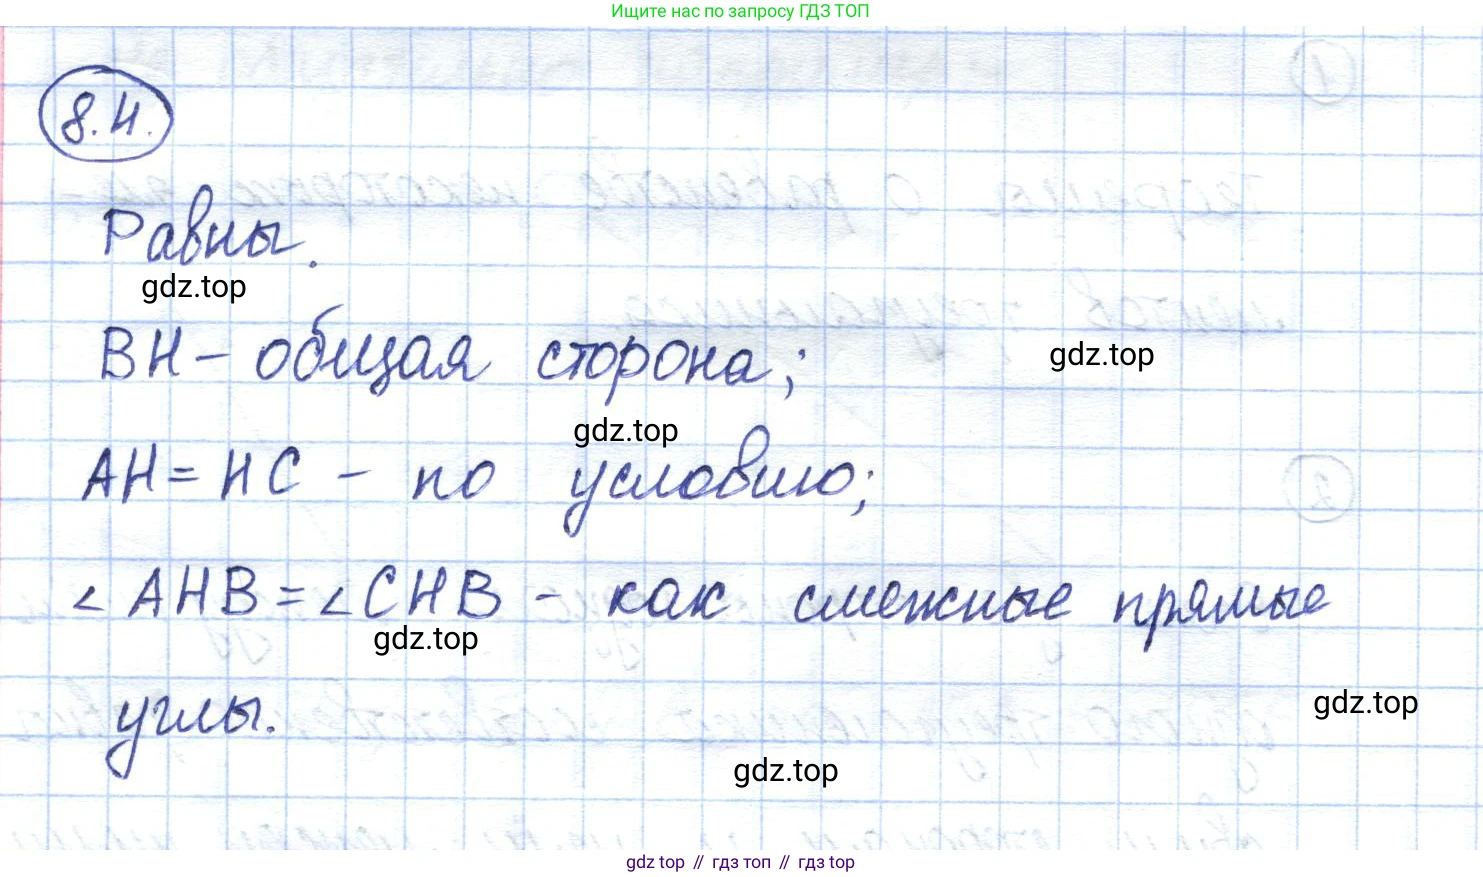 Ищите нас по запросу ГДЗ ТОП
8.4.
Равны.
gdz.top
BH - общая сторона;
gdz.top
gdz.top
AH = HC - по условию;
∠AHB = ∠CHB - как смежные прямые
gdz.top
углы.
gdz.top
gdz.top
gdz top // гдз топ // gdz top